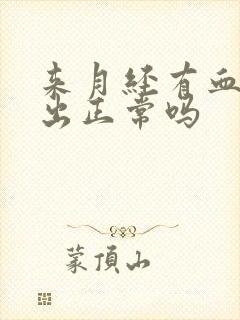 来月经有血
出正常吗
蒙顶山